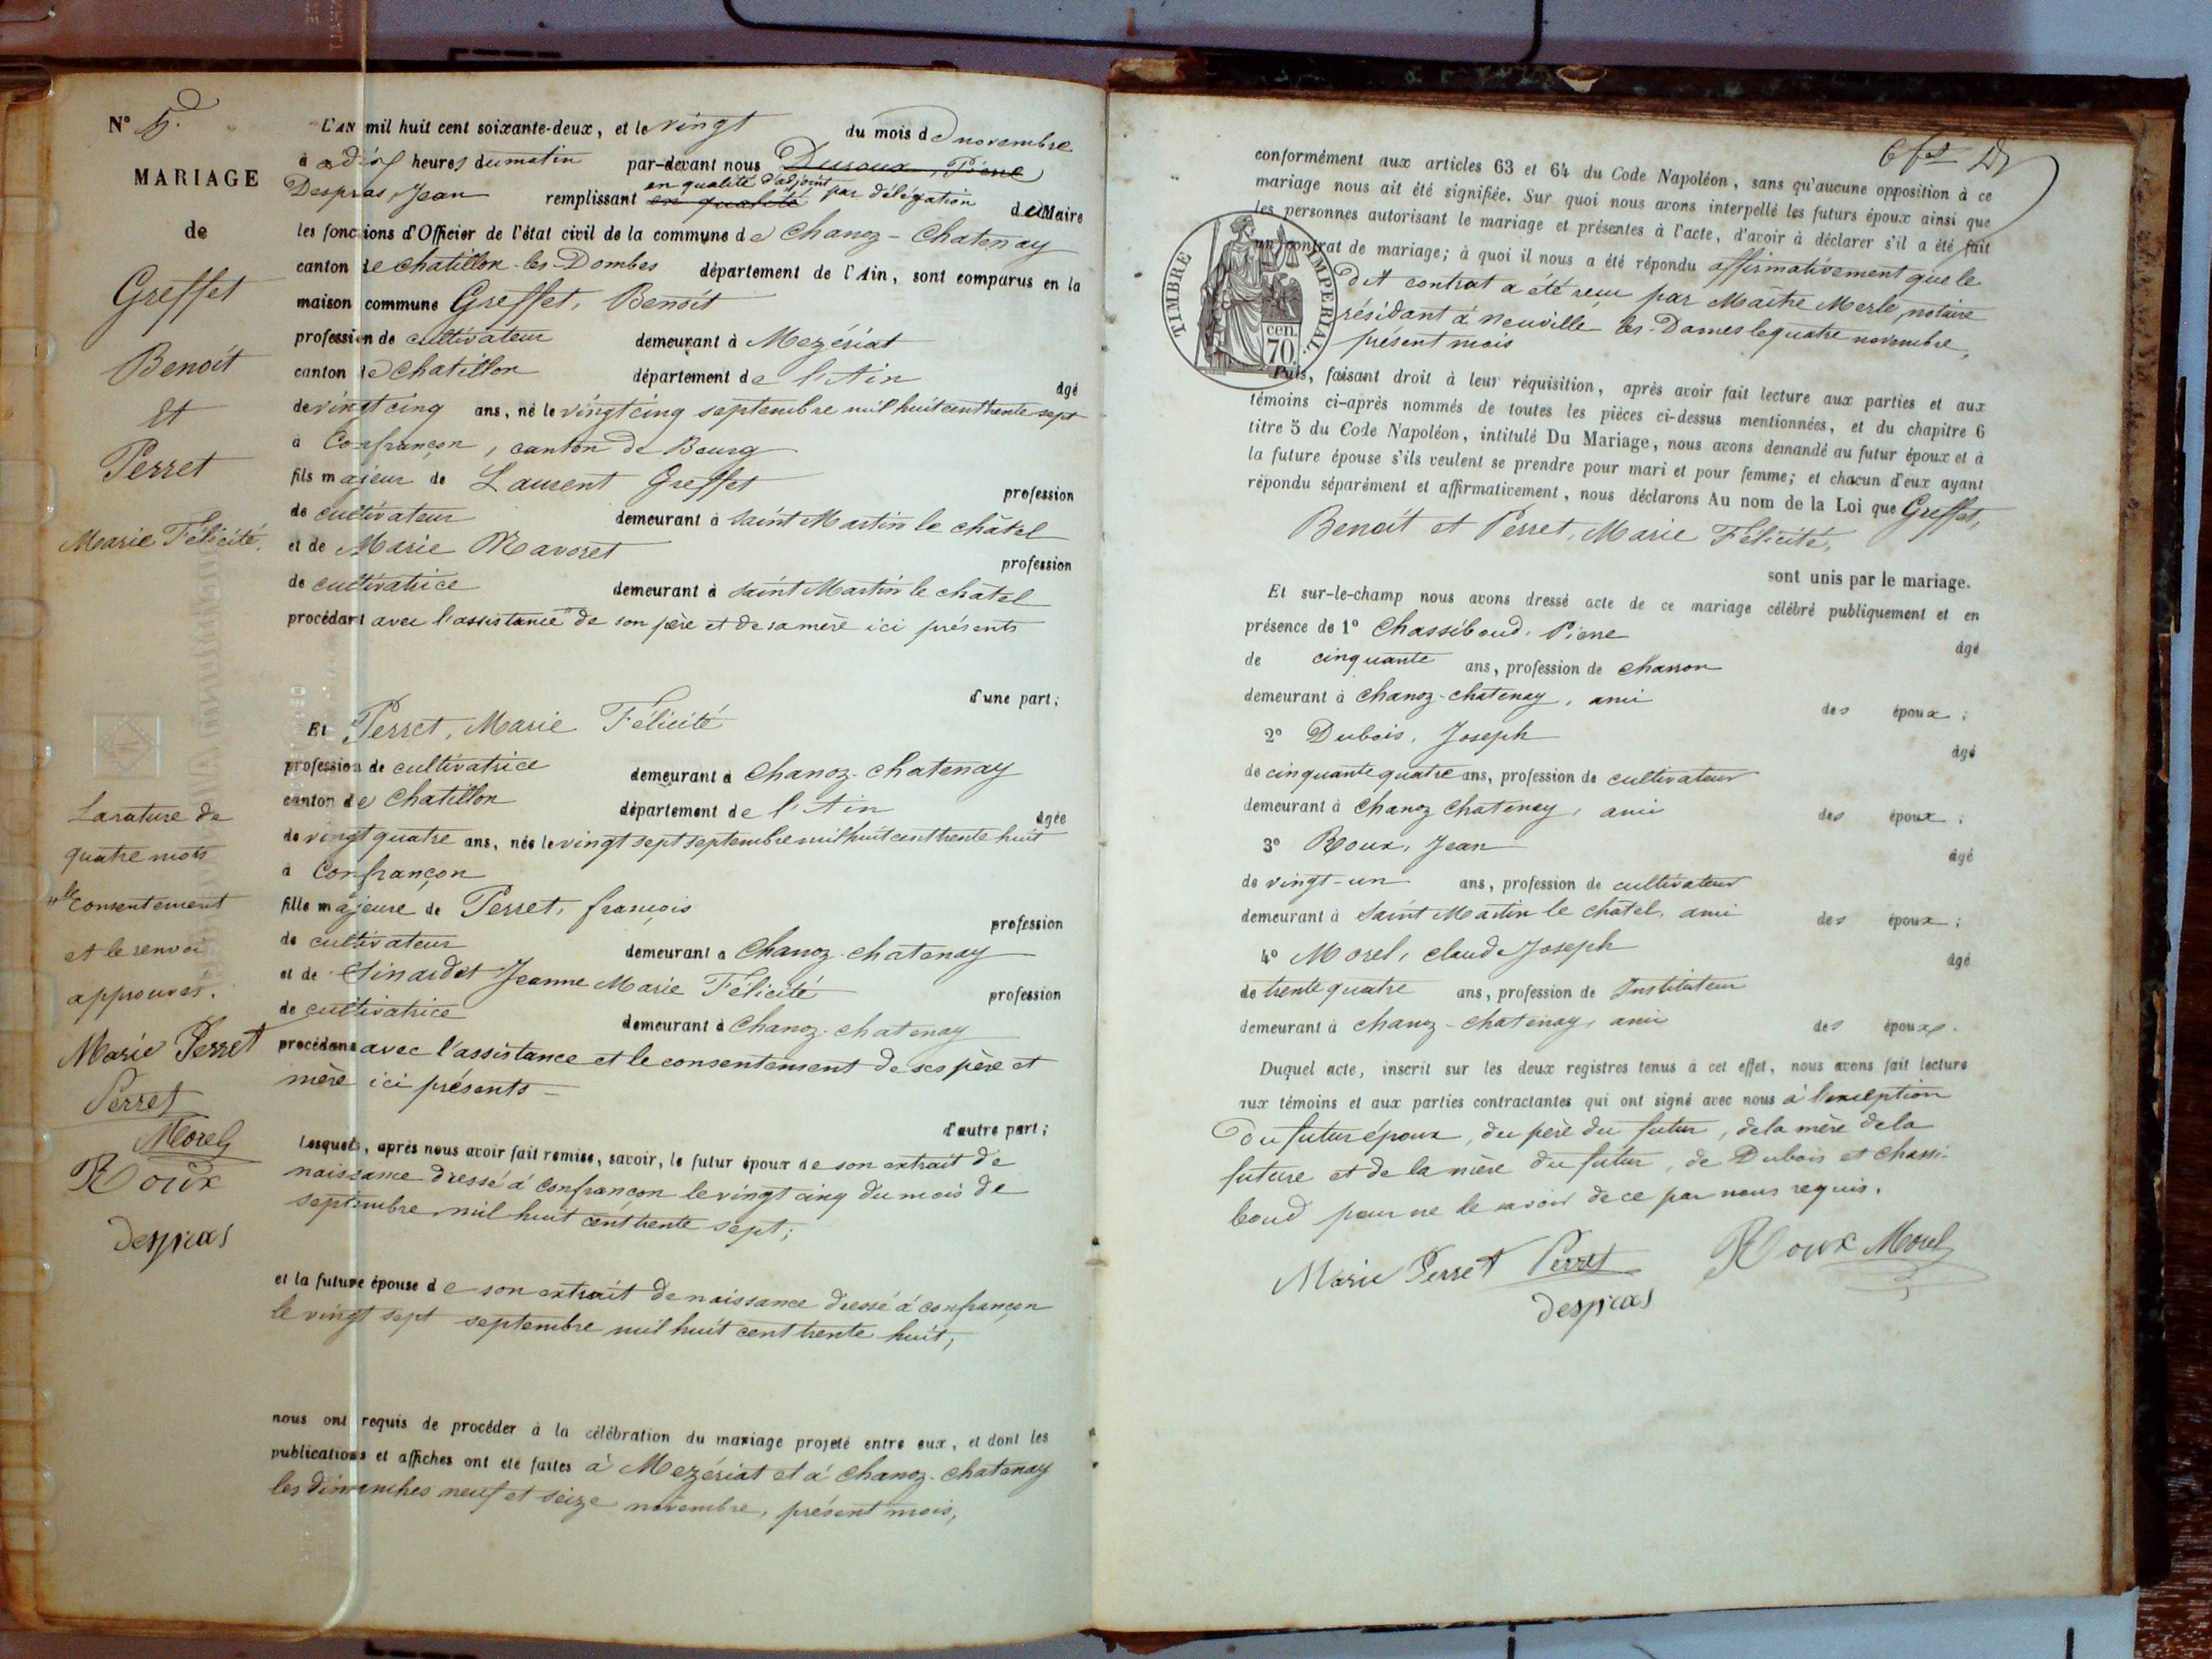 N° 5.
MARIAGE
de
Greffet
Benoit
Et
Perret
Marie Félicité.
La rature de
quatre mots
"le consentement
et le renvoi
approuvés.
Marie Perret
Perret
Morel
Roux
Despras
L'AN mil huit cent soixante-deux, et le vingt du mois de novembre
à dix heures du matin par-devant nous Duroux, Pierre
en qualité d'adjoint
Despras, Jean remplissant en qualité par délégation du Maire
les fonctions d'Officier de l'état civil de la commune de Chanoz-Chatenay
canton de Chatillon-les-Dombes département de l'Ain, sont comparus en la
maison commune Greffet, Benoit
profession de cultivateur demeurant à Mezériat
canton de Chatillon département de l'Ain âgé
de vingt cinq ans, né le vingt cinq septembre mil huit cent trente sept
à Confrançon, canton de Bourg
fils majeur de Laurent Greffet profession
de cultivateur demeurant à Saint Martin le châtel
et de Marie Ravoret profession
de cultivatrice demeurant à Saint Martin le chatel
procédant avec l'assistance de son père et de sa mère ici présents
d'une part;
Et Perret, Marie Félicité
profession de cultivatrice demeurant à Chanoz-chatenay
canton de Chatillon département de l'Ain âgée
de vingt quatre ans, née le vingt sept septembre mil huit cent trente huit
à Confrançon
fille majeure de Perret, françois profession
de cultivateur demeurant à Chanoz-chatenay
et de Sinardet Jeanne Marie Félicité profession
de cultivatrice demeurant à Chanoz-chatenay
procédant avec l'assistance et le consentement de ses père et
mère ici présents
d'autre part;
Lesquels, après nous avoir fait remise, savoir, le futur époux de son extrait de
naissance dressé à Confrançon le vingt cinq du mois de
septembre mil huit cent trente sept;
et la future épouse de son extrait de naissance dressé à confrançon
le vingt sept septembre mil huit cent trente huit,
nous ont requis de procéder à la célébration du mariage projeté entre eux, et dont les
publications et affiches ont été faites à Mezériat et à Chanoz-chatenay
les dimanches neuf et seize novembre, présent mois,
conformément aux articles 63 et 64 du Code Napoléon, sans qu'aucune opposition à ce
mariage nous ait été signifiée. Sur quoi nous avons interpellé les futurs époux ainsi que
les personnes autorisant le mariage et présentes à l'acte, d'avoir à déclarer s'il a été fait
un contrat de mariage; à quoi il nous a été répondu affirmativement que le
dit contrat a été reçu par Maître Merle, notaire
résidant à Neuville-les-Dames le quatre novembre,
présent mois
TIMBRE IMPERIAL.
cen.
70
Puis, faisant droit à leur réquisition, après avoir fait lecture aux parties et aux
témoins ci-après nommés de toutes les pièces ci-dessus mentionnées, et du chapitre 6
titre 5 du Code Napoléon, intitulé Du Mariage, nous avons demandé au futur époux et à
la future épouse s'ils veulent se prendre pour mari et pour femme; et chacun d'eux ayant
répondu séparément et affirmativement, nous déclarons Au nom de la Loi que Greffet,
Benoit et Perret, Marie Félicité,
sont unis par le mariage.
Et sur-le-champ nous avons dressé acte de ce mariage célébré publiquement et en
présence de 1° Chassiboud, Pierre âgé
de cinquante ans, profession de charron
demeurant à Chanoz-chatenay, ami des époux;
2° Dubois, Joseph âgé
de cinquante quatre ans, profession de cultivateur
demeurant à Chanoz Chatenay, ami des époux;
3° Roux, Jean âgé
de vingt-un ans, profession de cultivateur
demeurant à Saint Martin le châtel, ami des époux;
4° Morel, Claude Joseph âgé
de trente quatre ans, profession de Instituteur
demeurant à Chanoz-chatenay, ami des époux.
Duquel acte, inscrit sur les deux registres tenus à cet effet, nous avons fait lecture
aux témoins et aux parties contractantes qui ont signé avec nous à l'exception
du futur époux, du père du futur, de la mère de la
future et de la mère du futur, de Dubois et Chassi-
boud pour ne le savoir de ce par nous requis.
Marie Perret Perret Roux Morel
Despras